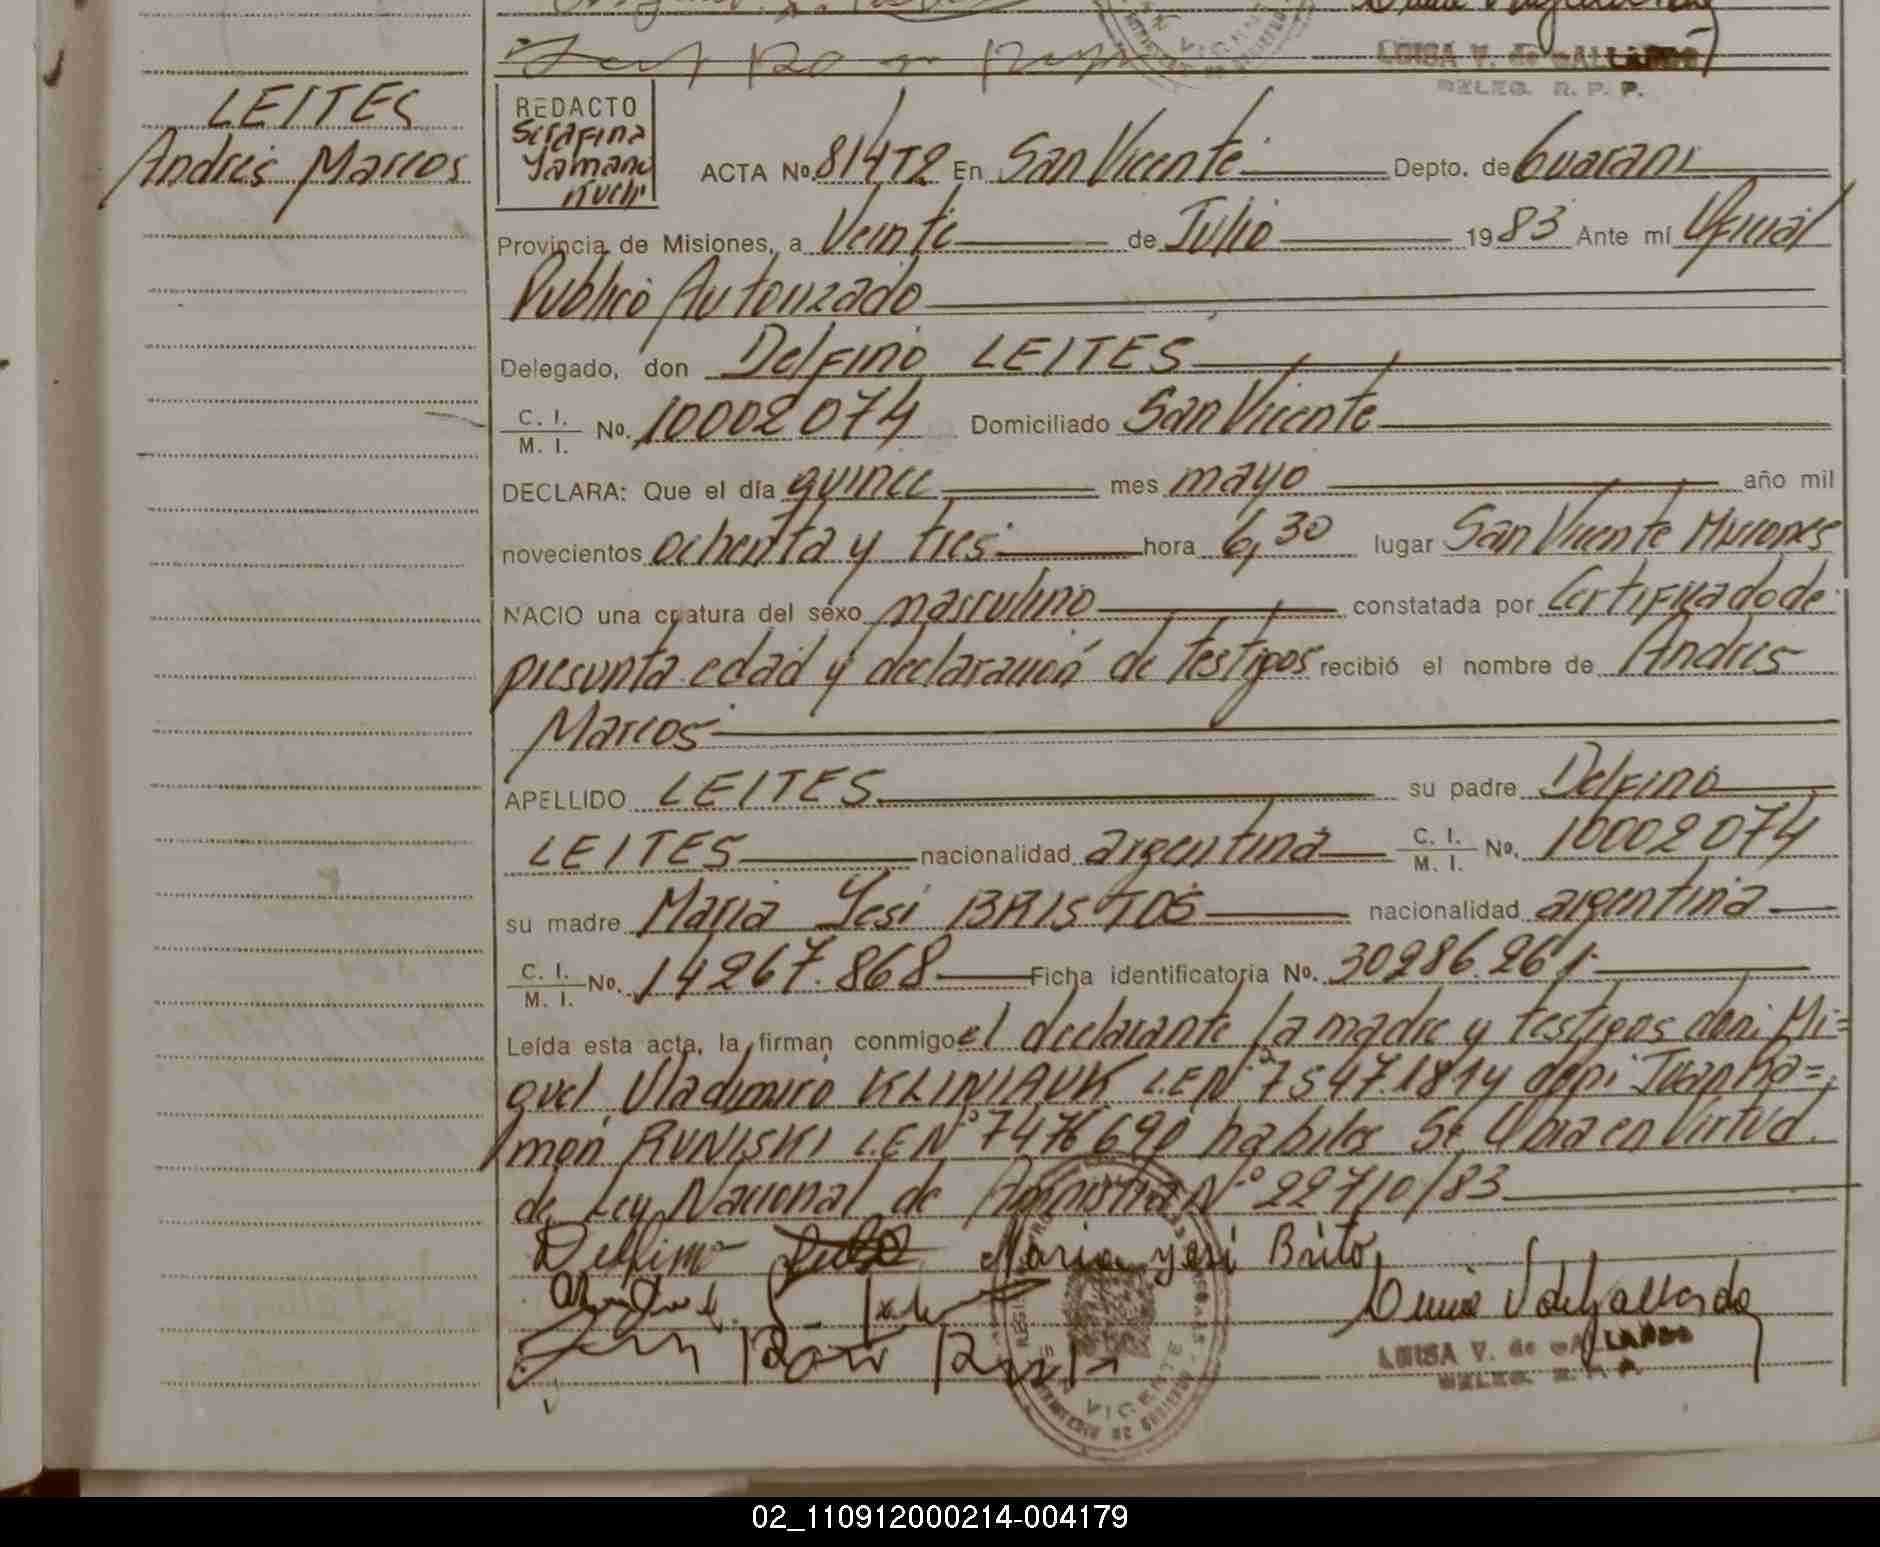 LUISA V. de GALLARDO
DELEG. R. P. P.
LEITES
Andres Marcos
REDACTO
Serafina
Yamanu
Kuchi
ACTA No. 814T2 En San Vicente Depto. de Guarani
Provincia de Misiones, a Veinte de Julio 1983 Ante mí Oficial
Publico Autorizado
Delegado, don Delfino LEITES
C. I. / M. I. No. 10002074 Domiciliado San Vicente
DECLARA: Que el día quince mes mayo año mil
novecientos ochenta y tres hora 6,30 lugar San Vicente Misiones
NACIO una criatura del sexo masculino constatada por Certificado de
presunta edad y declaración de testigos recibió el nombre de Andres
Marcos
APELLIDO LEITES su padre Delfino
LEITES nacionalidad argentina C. I. / M. I. No. 10002074
su madre Maria Yesi nacionalidad argentina
C. I. / M. I. No. 14267.868 Ficha identificatoria No. 30286.261
Leída esta acta, la firman conmigo el declarante la madre y testigos don: Mi=
guel Vladimiro KLINIAUK L.E.Nº 7547.814 don: Juan Ra=
mon RUNISKI L.E.Nº 7476690 habiles Se labra en Virtud
de Ley Nacional de Amnistia Nº 22710/83
Delfino Maria yesi Brito
Luisa V de Gallardo
LUISA V. de GALLARDO
DELEG. R. P. P.
VICENTE
02_110912000214-004179